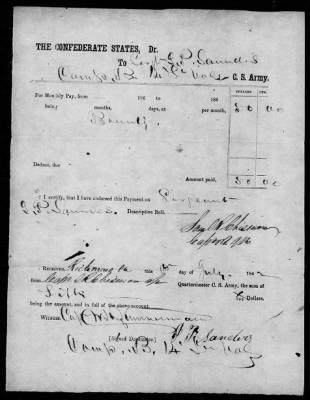 THE CONFEDERATE STATES, Dr.
To Corpl P. R. Saunders
Comp. B. 14 Va Vols C. S. Army.
DOLLARS. CTS.
For Monthly Pay, from 186 to 186
being months, days, at per month, 50 00
Bounty
Deduct, due
Amount paid, 50 00
I certify, that I have endorsed this Payment on Sergeant
P. R. Saunders Descriptive Roll.
Capt & A Q M
RECEIVED, Richmond Va this day of July 1862
from Capt Chisman a Quartermaster C. S. Army, the sum of
Fifty Dollars,
being the amount, and in full of the above account.
WITNESS Capt Zimmerman
[Signed Duplicate.] P. R. Sanders
Comp. B. 14